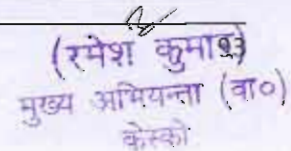 (रमेश कुमार)93
मुख्य अभियन्ता (वा०)
केस्को